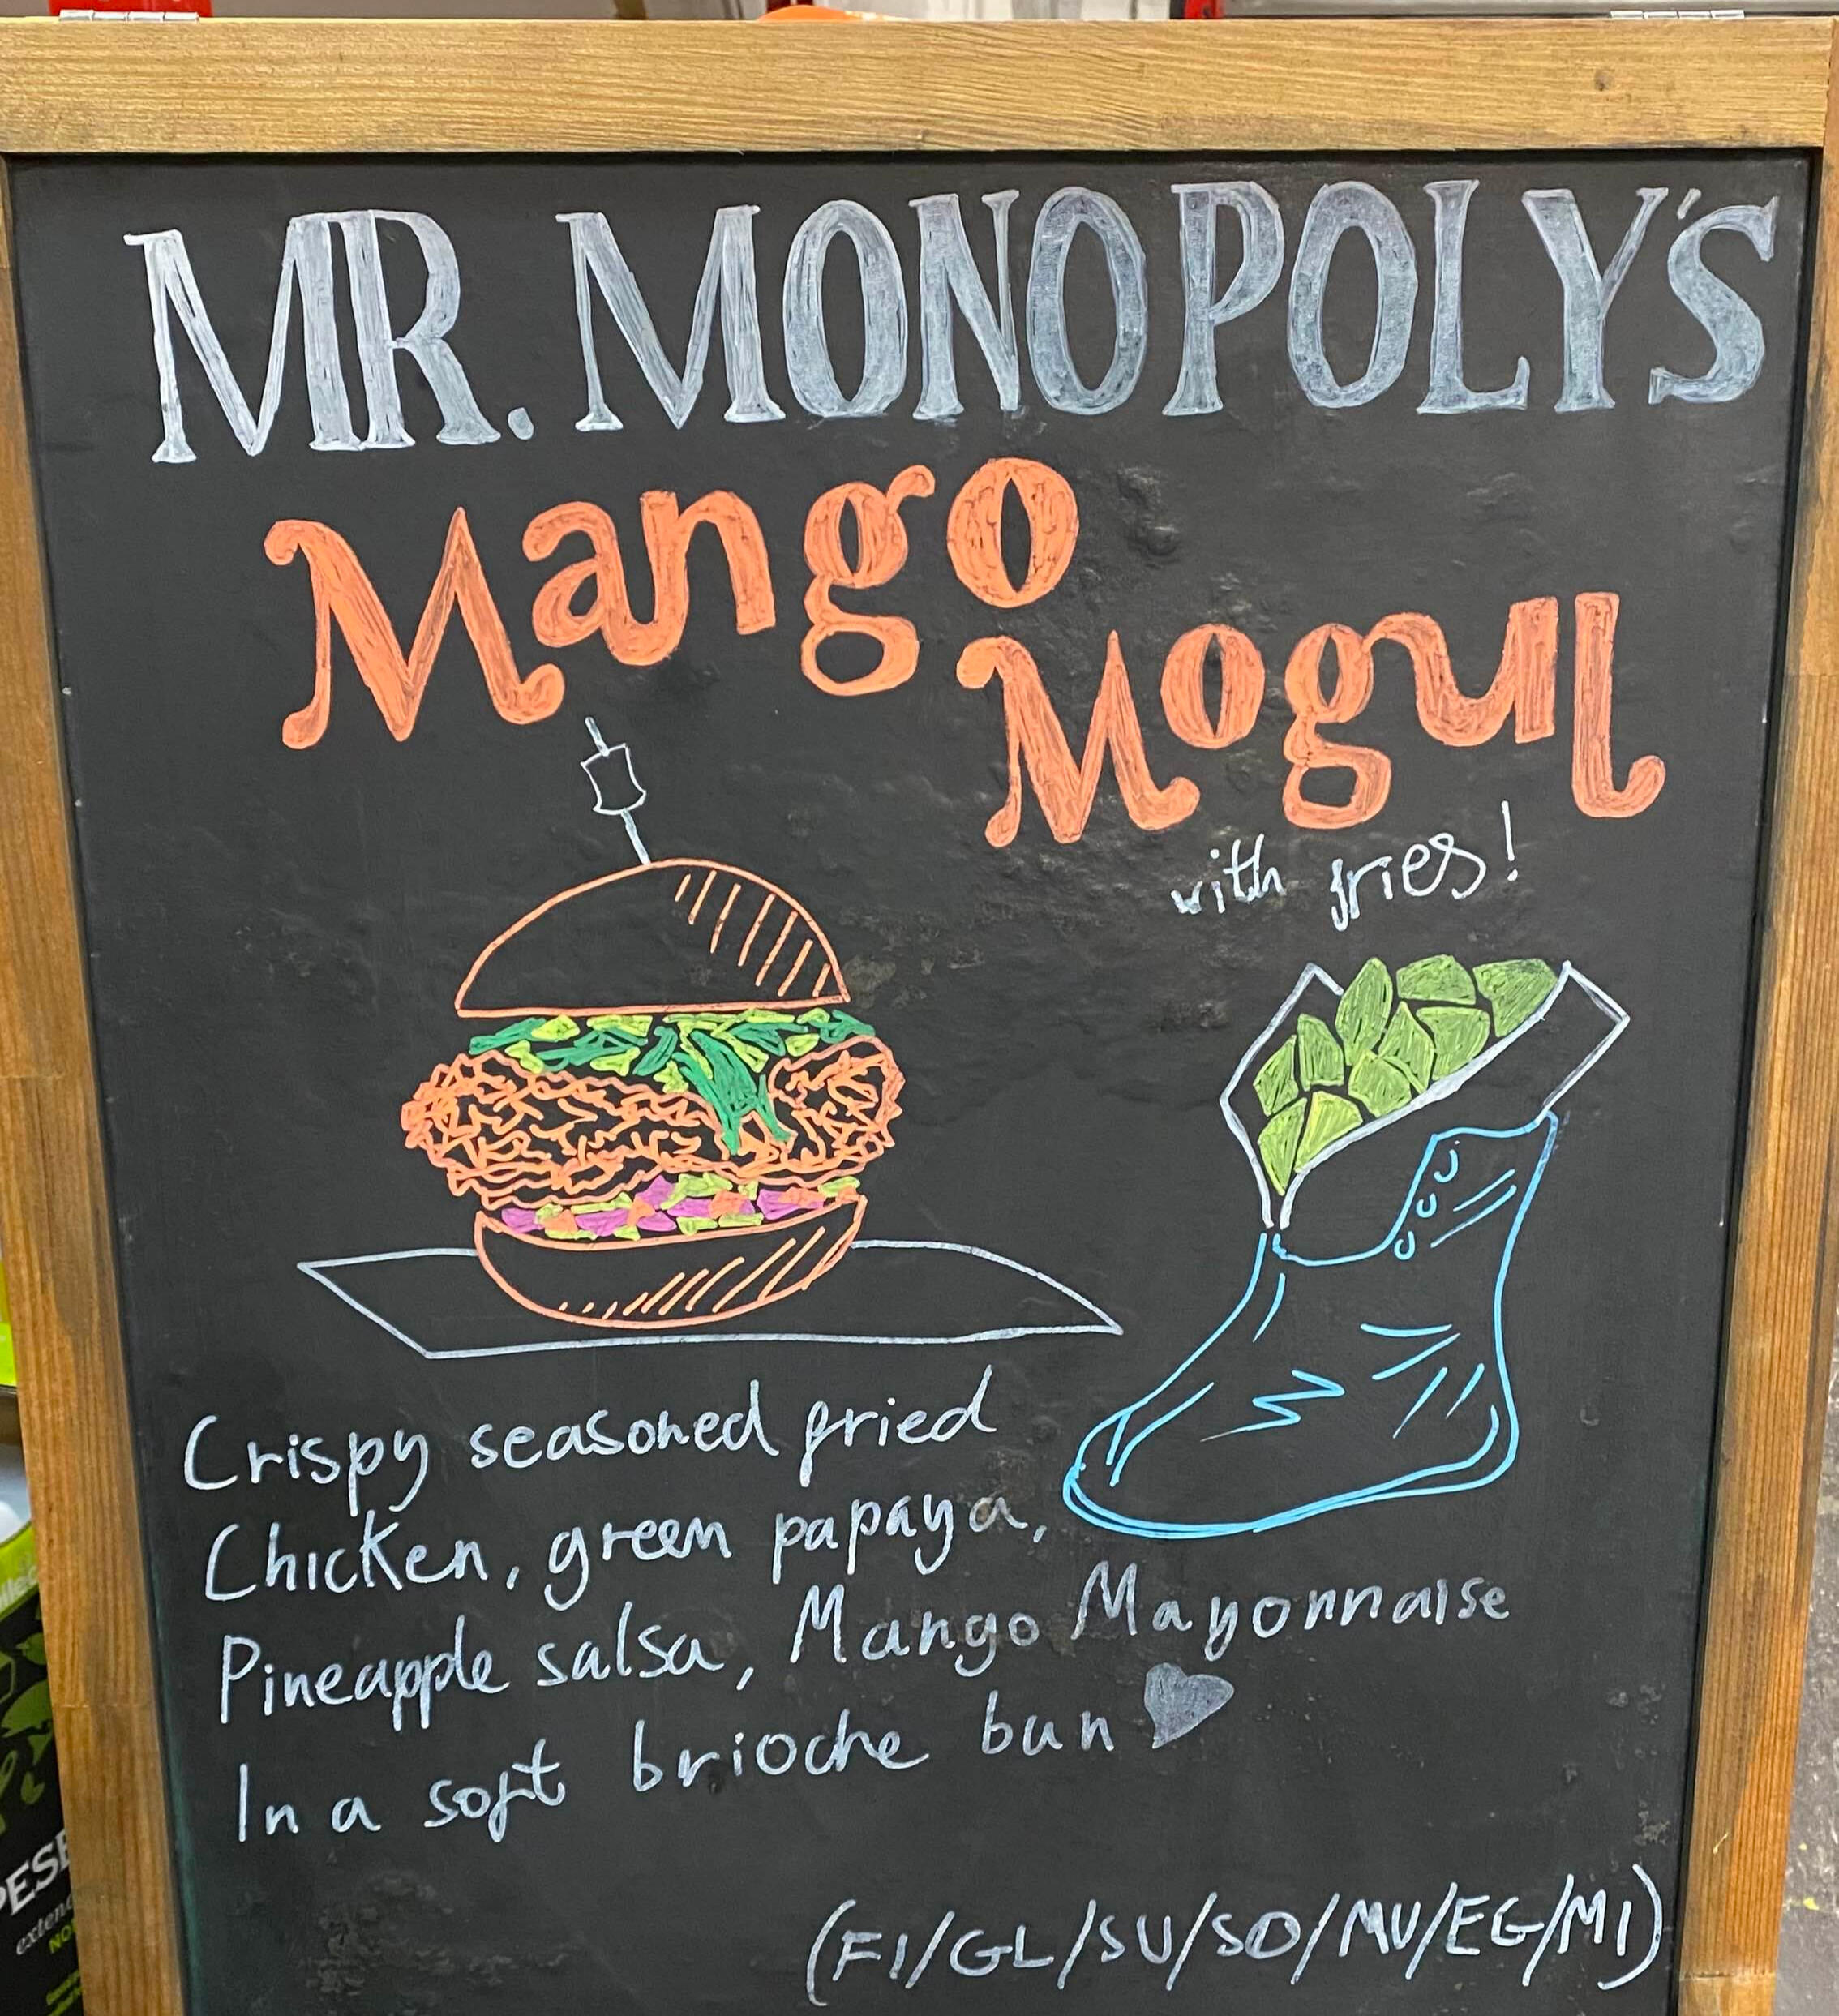 MR. MONOPOLY'S
Mango
Mogul
with fries!
Crispy seasoned fried
Chicken, green papaya,
Pineapple salsa, Mango Mayonnaise
In a soft brioche bun
(FI/GL/SU/SO/MU/EG/MI)